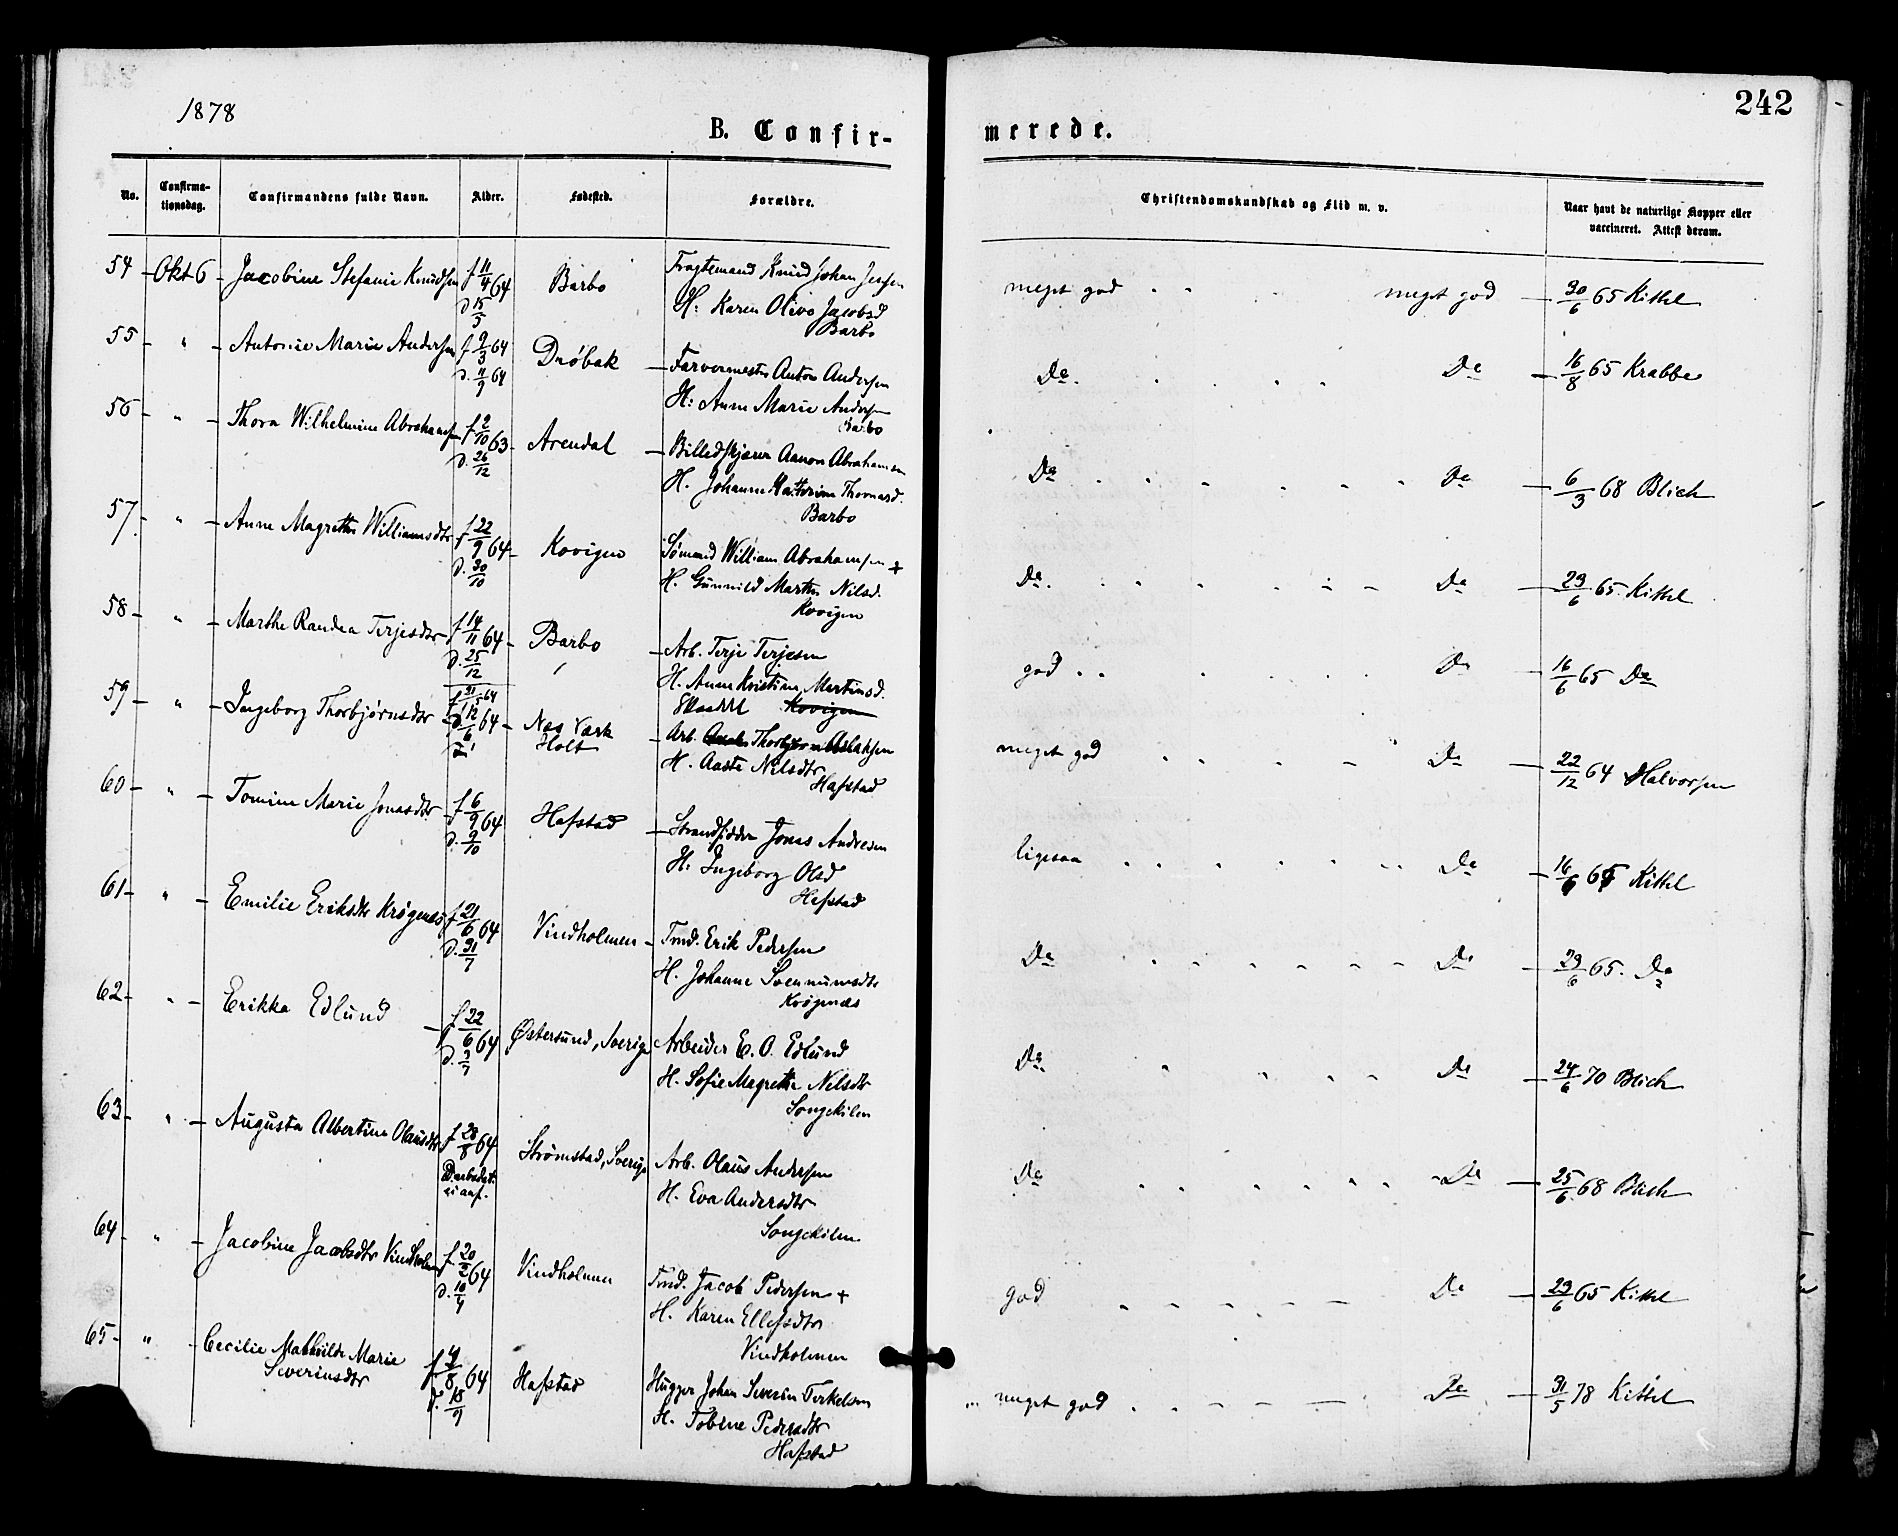 1878
242
B. Confir-
merede.
No.
Confirma-
tionsdag.
Confirmandens fulde Navn.
Alder.
Fødested.
Forældre.
Christendomskundskab og Flid m. v.
Naar havt de naturlige Kopper eller
vaccineret. Attest derom.
54 - Okt 6 - Jacobine Stefanie Knudsen f 11/4 64 Barbo Fragtemand Knud Johan Jessen meget god meget god - 30/6 65 Kittel
d 15/5 H: Karen Olivo Jacobsd
Barbo
55 - " - Antonie Marie Andersen f 9/3 64 Drøbak - Farvermester Anton Andersen Do. Do - 16/8 65 Krabbe
d. 11/9 64 H: Anne Marie Andersen
Barbo
56 - " - Thora Wilhelmine Abrahamsen f 2/10 63 - Arendal - Billedskjærer Aanon Abrahamsen Do Do - 6/3 68 Blich
d. 26/12 H. Johanne Kathrine Thomasd.
Barbo
57. - " - Anne Magrethe Williamsdtr f 22/9 64 - Kovigen Sømand William Abrahamsen + Do. Do - 29/6 65 Kittel
d. 30/10 H. Gunnild Marthe Nilsd.
Kovigen
58 - " - Marthe Randea Terjesdtr f 14/11 64 - Barbo - Arb. Terje Terjesen god Do - 16/6 65 Do
d. 25/12 H. Anne Kristine Martinsd.
Kovigen
59 - " - Ingeborg Thorbjørnsdtr 64 - Næs Værk - Arb. Thorbjørn Aslaksen meget god Do - 22/12 64 Halvorsen
Holt H. Aaste Nilsdtr
Hafstad
60 - " - Tomine Marie Jonasdtr f 6/9 64 Hafstad - Strandsidder Jonas Andresen ligesaa Do - 16/6 65 Kittel
d. 9/10 H. Ingeborg Olsd
Hafstad
61 - " - Emilie Eriksdtr Krøgenes f 21/6 64 Vindholmen - Tmd. Erik Pedersen Do Do - 29/6 65. Do
d. 31/7 H. Johanne Svennumsdtr
Krøgenæs
62 - " - Erikka Edlund - f 22/6 64 Østersund, Sverige Arbeider E. O. Edlund Do. Do - 24/6 70 Blich
d. 3/7 H. Sofie Magrethe Nilsdtr
Songekilen
63 - " - Augusta Albertine Olausdtr f 28/8 64 Strømstad, Sverige Arb. Olaus Andersen Do Do - 25/6 68 Blich
Daabsdat.
ei anf. H. Eva Andersdtr
Songekilen
64 - " - Jacobine Jacobsdtr Vindholm f 20/2 64 Vindholmen Tmd. Jacob Pedersen + god Do - 29/6 65 Kittel
d. 10/4 H. Karen Ellefsdtr
Vindholmen
65 - " - Cecilie Mathilde Marie f 4/8 64 Hafstad Hugger Johan Severin Terkelsen meget god Do - 31/5 78 Kittel
Severinsdtr d. 18/9 H. Tobine Pedersdtr
Hafstad